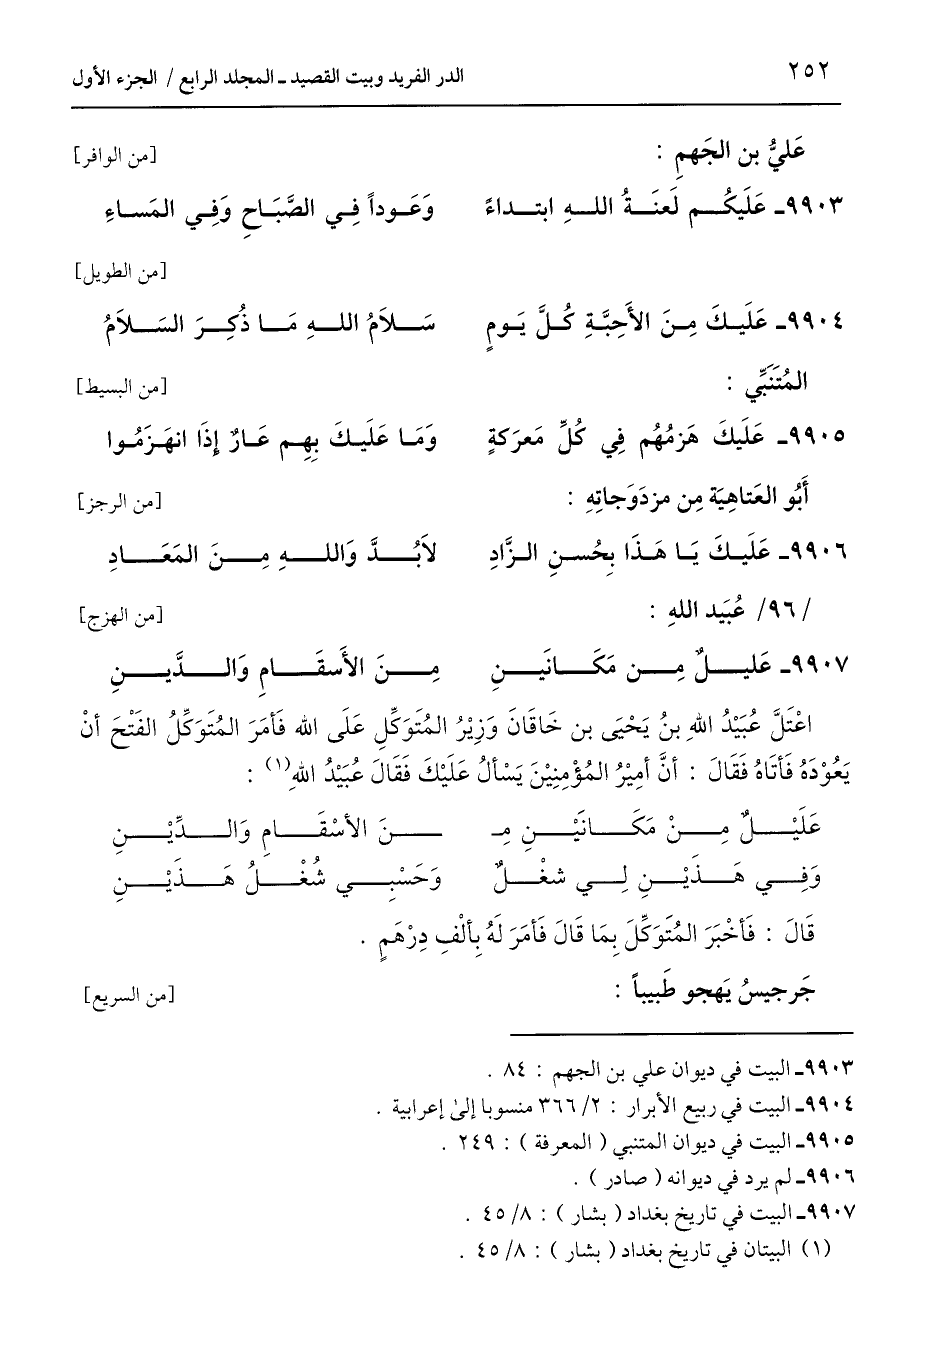 ٢٥٢ الدر الفريد وبيت القصيد ـ المجلد الرابع / الجزء الأول
عَليُّ بن الجَهمِ : [من الوافر]
٩٩٠٣ـ عَلَيكُم لَعنَةُ اللهِ ابتداءً وَعَوداً فِي الصَّبَاحِ وَفِي المَساءِ
[من الطويل]
٩٩٠٤ـ عَلَيكَ مِنَ الأَحِبَّةِ كُلَّ يَومٍ سَلاَمُ اللهِ مَا ذُكِرَ السَلاَمُ
المُتَنَبِّي : [من البسيط]
٩٩٠٥ـ عَلَيكَ هَزمُهُم فِي كُلِّ مَعرَكةٍ وَمَا عَلَيكَ بِهِم عَارٌ إِذَا انهَزَمُوا
أَبُو العَتاهِيَة مِن مزدَوَجاتِهِ : [من الرجز]
٩٩٠٦ـ عَلَيكَ يَا هَذَا بِحُسنِ الزَّادِ لاَبُدَّ وَاللهِ مِنَ المَعَادِ
/٩٦/ عُبَيد اللهِ : [من الهزج]
٩٩٠٧ـ عَليلٌ مِن مَكَانَينِ مِنَ الأَسقَامِ وَالدَّينِ
اعْتَلَّ عُبَيْدُ اللهِ بنُ يَحْيَى بن خَاقَانَ وَزِيْرُ المُتَوَكِّلِ عَلَى الله فَأمَرَ المُتَوَكِّلُ الفَتْحَ أنْ
يَعُوْدَهُ فَأتَاهُ فَقَالَ : أنَّ أمِيْرُ المُؤْمِنِيْنَ يَسْألُ عَلَيْكَ فَقَالَ عُبَيْدُ اللهِ(١) :
عَلَيْلٌ مِنْ مَكَانَيْنِ مِـ ـنَ الأسْقَامِ وَالدِّيْنِ
وَفِي هَذَيْنِ لِي شغْلٌ وَحَسْبِي شُغْلُ هَذَيْنِ
قَالَ : فَأخْبَرَ المُتَوَكِّلَ بِمَا قَالَ فَأمَرَ لَهُ بِألْفِ دِرْهَمٍ .
جَرجيسُ يَهجو طَبيباً : [من السريع]
٩٩٠٣ـ البيت في ديوان علي بن الجهم : ٨٤ .
٩٩٠٤ـ البيت في ربيع الأبرار : ٢/ ٣٦٦ منسوبا إلىٰ إعرابية .
٩٩٠٥ـ البيت في ديوان المتنبي ( المعرفة ) : ٢٤٩ .
٩٩٠٦ـ لم يرد في ديوانه ( صادر ) .
٩٩٠٧ـ البيت في تاريخ بغداد ( بشار ) : ٨/ ٤٥ .
(١) البيتان في تاريخ بغداد ( بشار ) : ٨/ ٤٥ .